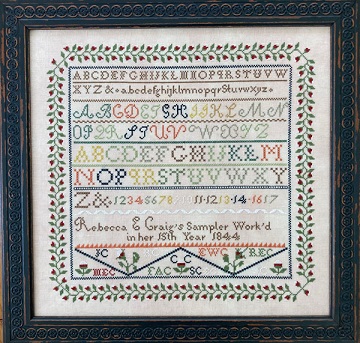 ABCDEFGHIJKLMNOPQRSTUVW
XYZ & abcdefghijklmnopqrstuvwxyz
ABCDEFGHIJKLMN
OPQRSTUVWXYZ
ABCDEFGHIJKLM
NOPQRSTUVWXYZ
Z& 12345678 11·12·13·14·16·17
Rebecca E Craig's Sampler Work'd
in her 15th Year 1844
JC C C EWC REC
MEC FAC SC